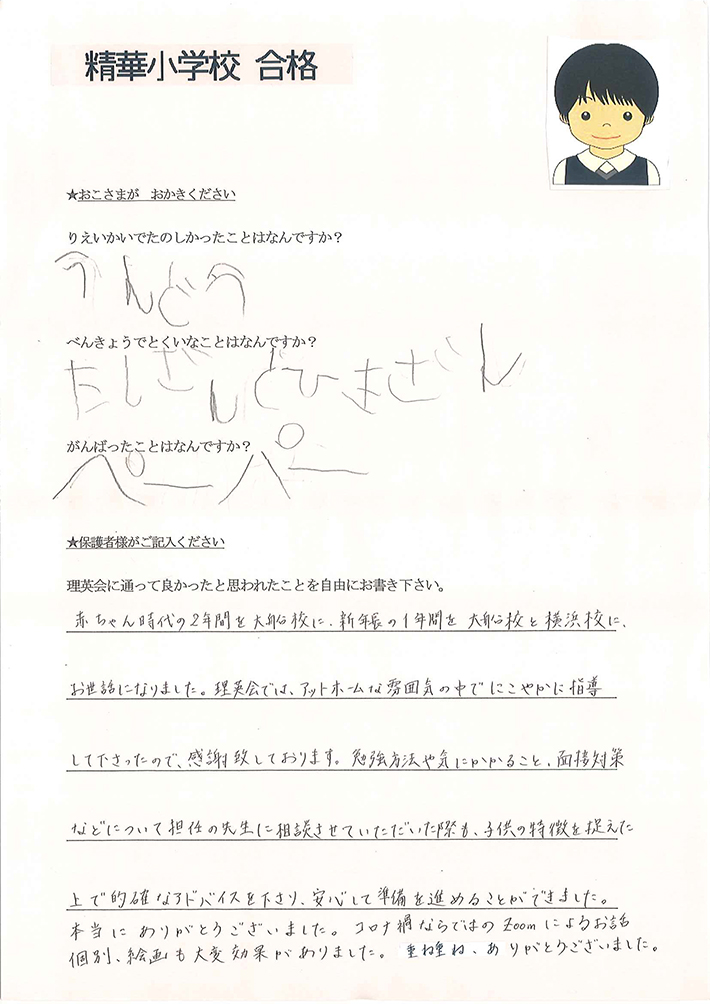 精華小学校 合格
★おこさまが おかきください
りえいかいでたのしかったことはなんですか？
うんどう
べんきょうでとくいなことはなんですか？
たしざんどひきざん
がんばったことはなんですか？
ペーパー
★保護者様がご記入ください
理英会に通って良かったと思われたことを自由にお書き下さい。
赤ちゃん時代の2年間を大船校に、新年長の1年間を大船校と横浜校に、
お世話になりました。理英会では、アットホームな雰囲気の中でにこやかに指導
して下さったので、感謝致しております。勉強方法や気にかかること、面接対策
などについて担任の先生に相談させていただいた際も、子供の特徴を捉えた
上で的確なアドバイスを下さり、安心して準備を進めることができました。
本当にありがとうございました。コロナ禍ならではのZoomによるお話
個別、絵画も大変効果がありました。重ね重ね、ありがとうございました。